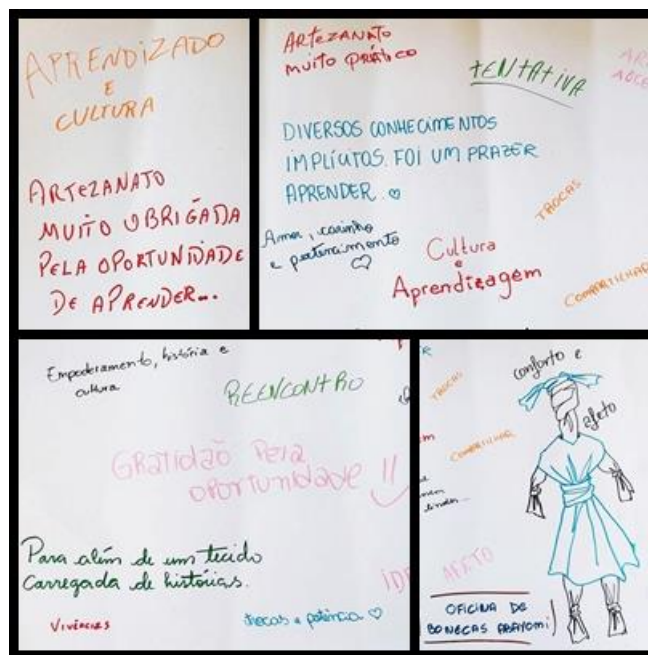 APRENDIZADO
E
CULTURA
ARTEZANATO
MUITO OBRIGADA
PELA OPORTUNIDADE
DE APRENDER...
ARTEZANATO
MUITO PRÁTICO
TENTATIVA
DIVERSOS CONHECIMENTOS
IMPLÍCITOS. FOI UM PRAZER
APRENDER.
TROCAS
Amor, carinho
e pertencimento
Cultura
e
Aprendizagem
COMPARTILHAR
Empoderamento, história e
cultura
REENCONTRO
GRATIDÃO PELA
OPORTUNIDADE !!
Para além de um tecido
Carregada de histórias.
VIVÊNCIAS
trocas e potência
conforto e
afeto
TROCAS
COMPARTILHAR
AFETO
OFICINA DE
BONECAS ABAYOMI